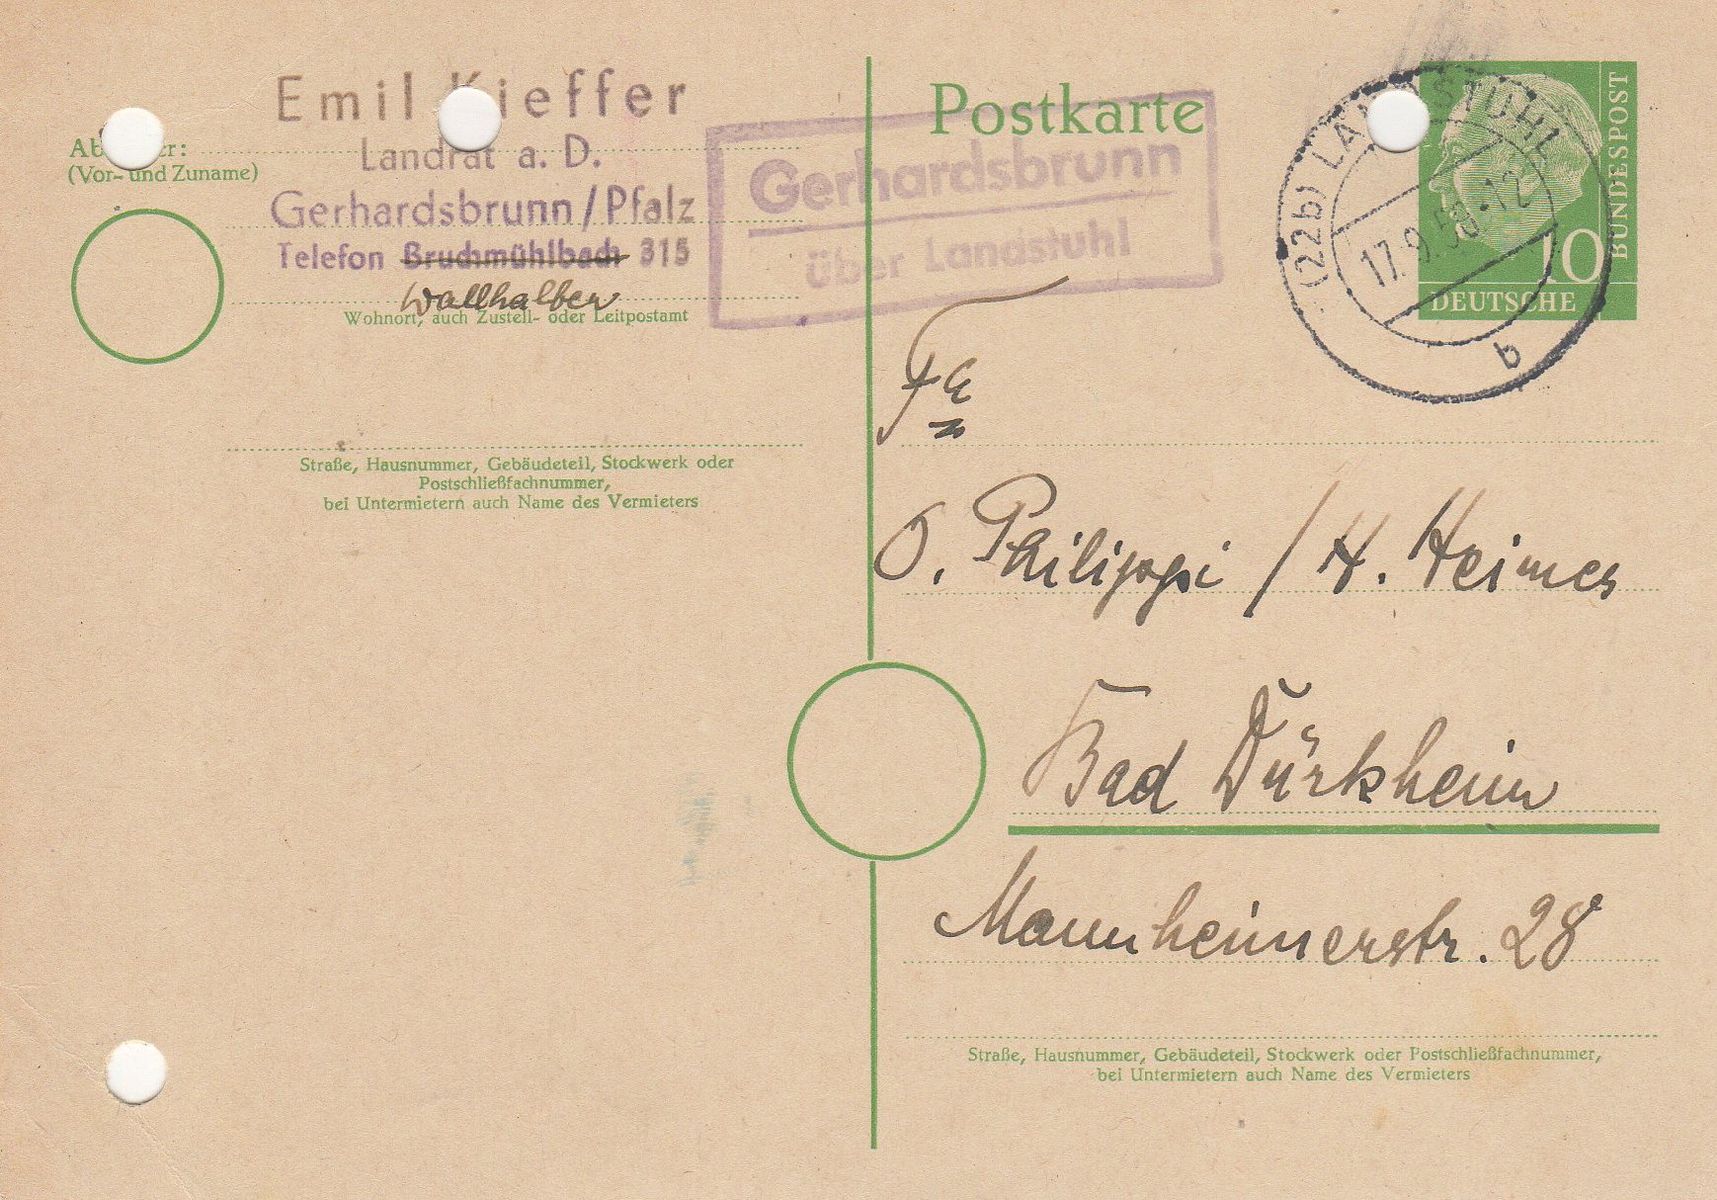 Emil Kieffer
Landrat a. D.
Gerhardsbrunn/Pfalz
Telefon Bruchmühlbach 315
Wallhalben
(Vor- und Zuname)
Wohnort, auch Zustell- oder Leitpostamt
Straße, Hausnummer, Gebäudeteil, Stockwerk oder
Postschließfachnummer,
bei Untermietern auch Name des Vermieters
Postkarte
Gerhardsbrunn
über Landstuhl
(22b) LANDSTUHL
17.9.58-12
b
BUNDESPOST
10
DEUTSCHE
Fa
O. Philippi / H. Heimes
Bad Dürkheim
Mannheimerstr. 28
Straße, Hausnummer, Gebäudeteil, Stockwerk oder Postschließfachnummer,
bei Untermietern auch Name des Vermieters